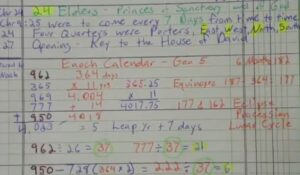 24 Elders - Princes of Sanctuary and of God
25 were to come every 7 Days from time to time
24 Four Quarters were Porters, East, West, North, South
27 Opening - Key to the House of David
Enoch Calendar - Gen 5 6 Months 182
Enoch
962 364 days
365 x 11 yrs 365.25 Equinox 187 - 364 177
969 4,004 x 11
777 + 14 4017.75 177 & 162 Eclipse
950 4018 Precession
4,023 = 5 Leap Yr + 7 days Lunar Cycle
962 ÷ 26 = 37 777 ÷ 37 = 21
950 - 728 (364x2) = 222 ÷ 37 = 6